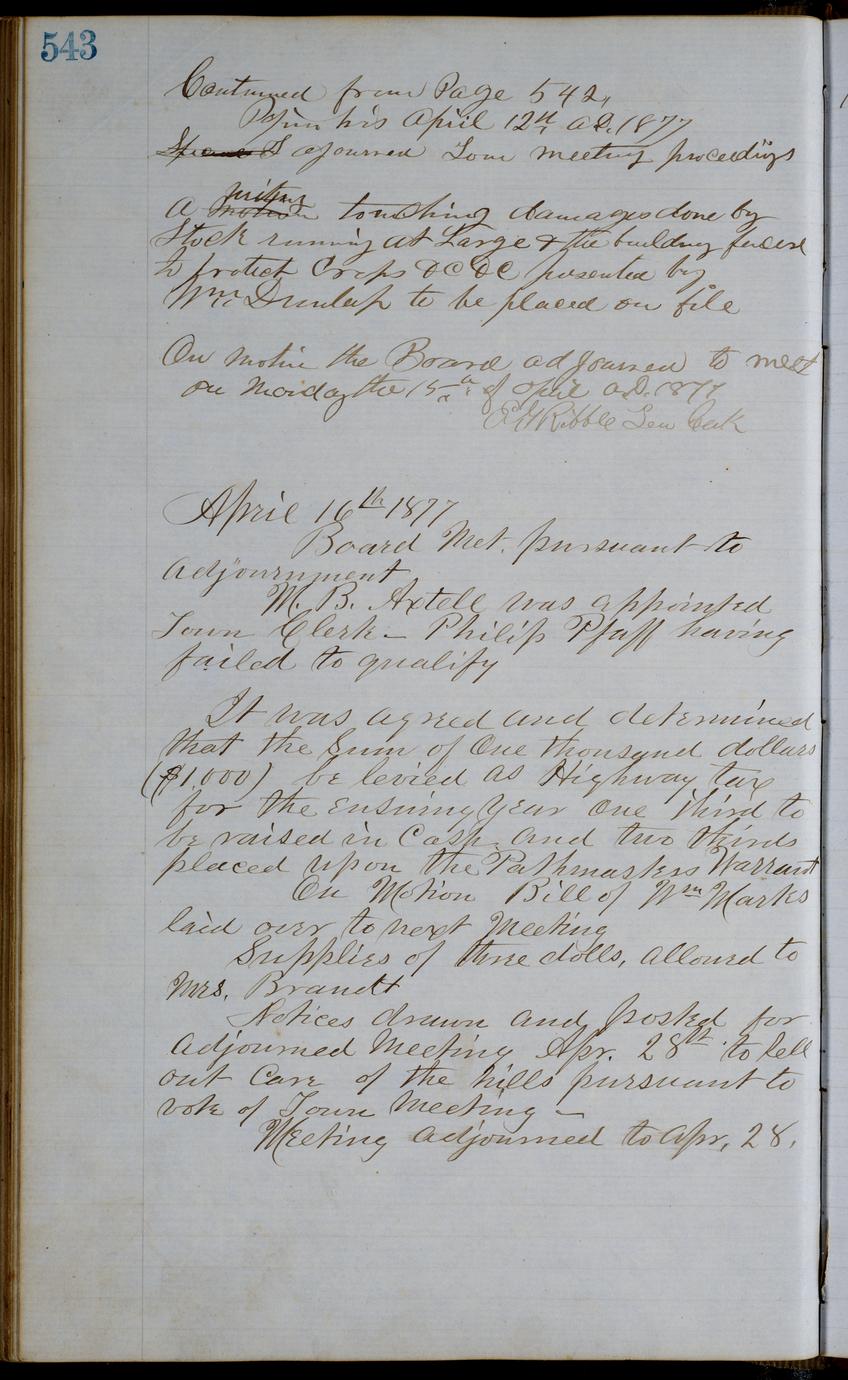 543
Continued from Page 542,
his April 12th A.D. 1877
ajourned Town meeting proceedings
A touching damages done by
Stock running at Large & the building fences
to protect Crops &C &C presented by
Wm Dunlap to be placed on file
On motion the Board adjourned to meet
on Monday the 15th of April A.D. 1877
Ribble Clerk
April 16th 1877
Board Met. pursuant to
adjournment
M. B. Axtell was appointed
Town Clerk - Philip Pfaff having
failed to qualify
It was agreed and determined
that the Sum of One thousand dollars
($1,000) be levied as Highway tax
for the Ensuing Year One third to
be raised in Cash and two thirds
placed upon the Pathmasters Warrant
On Motion Bill of Wm Marks
laid over to next Meeting
Supplies of three dolls, allowed to
Mrs. Brandt
Notices drawn and posted for
adjourned Meeting Apr. 28th to
out Care of the hills pursuant to
vote of Town Meeting -
Meeting adjourned to Apr, 28.